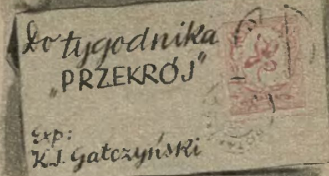 Do tygodnika
„PRZEKRÓJ"
Exp:
K.I. Gałczyński